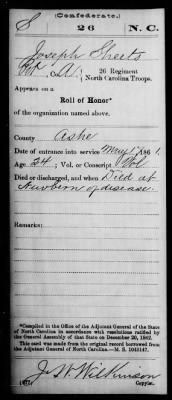 (Confederate.)
S 26 N. C.
Joseph Sheets
Pvt, Co. A, 26 Regiment
North Carolina Troops.
Appears on a
Roll of Honor*
of the organization named above.
County Ashe
Date of entrance into service May 17, 1861.
Age 24; Vol. or Conscript Vol
Died or discharged, and when Died at
Newbern of disease.
Remarks:
*Compiled in the Office of the Adjutant General of the State
of North Carolina in accordance with resolutions ratified by
the General Assembly of that State on December 20, 1862.
This card was made from the original record borrowed from
the Adjutant General of North Carolina.—M. S. 1043147.
J. W. Wilkinson
Copyist.